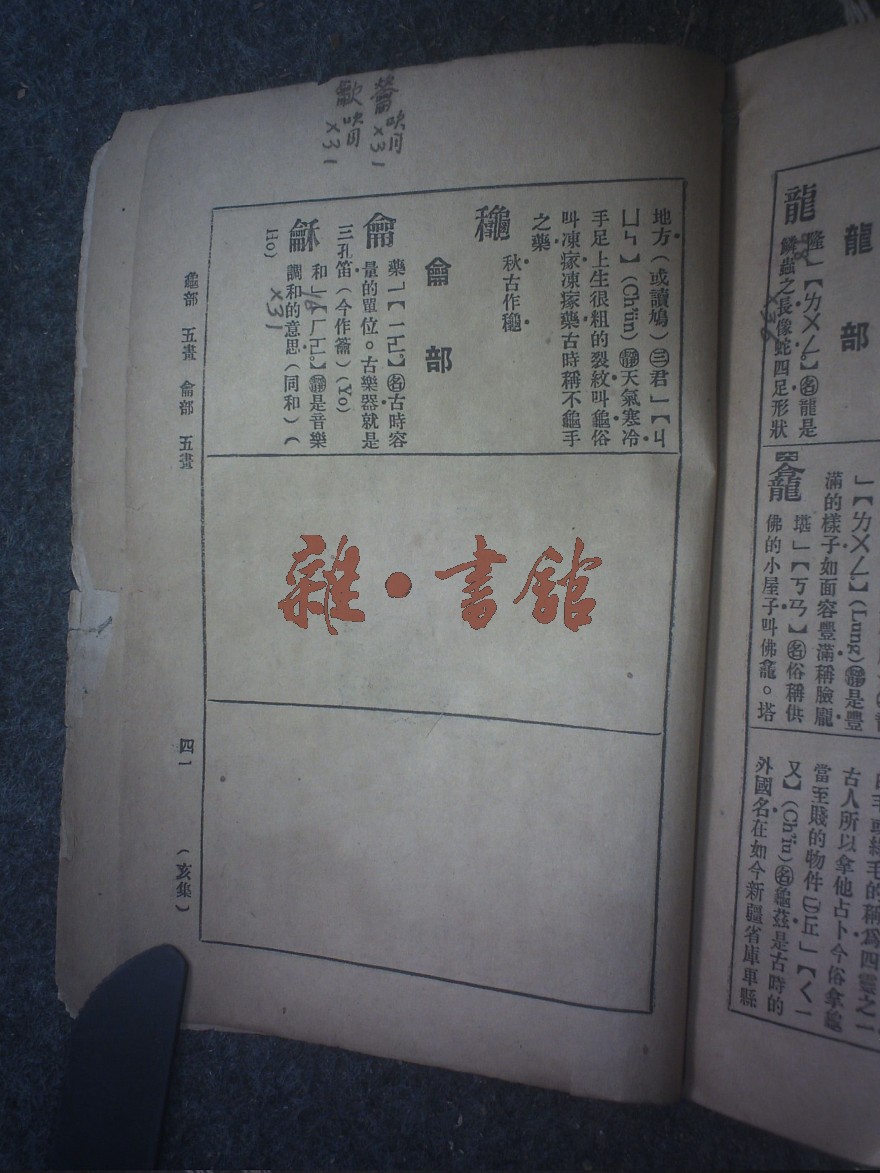 龍部
龍
隆」【ㄌㄨㄥ】㊔龍是
鱗蟲之長像蛇四足形狀
」【ㄌㄨㄥ】(Lung)㊔是豐
滿的樣子如面容豐滿稱臉龐
龕
堪」【ㄎㄢ】㊔俗稱供
佛的小屋子叫佛龕。塔
古人所以拿他占卜今俗拿龜
當至賤的物件㊁丘」【ㄑㄧ
又】(Ch'iu)㊔龜茲是古時的
外國名在如今新疆省庫車縣
地方(或讀鳩)㊂君」【ㄐ
ㄩㄣ】(Ch'ün)㊔天氣寒冷
手足上生很粗的裂紋叫龜俗
叫凍瘃凍瘃藥古時稱不龜手
之藥
龝
秋古作龝
龠部
龠
藥」【ㄧㄛ。】㊔古時容
量的單位。古樂器就是
三孔笛(今作籥)(Yo)
龢
和」【ㄏㄛ。】㊔是音樂
調和的意思(同和)(
Ho)
龜部 五畫 龠部 五畫
四一
(亥集)
雜·書館